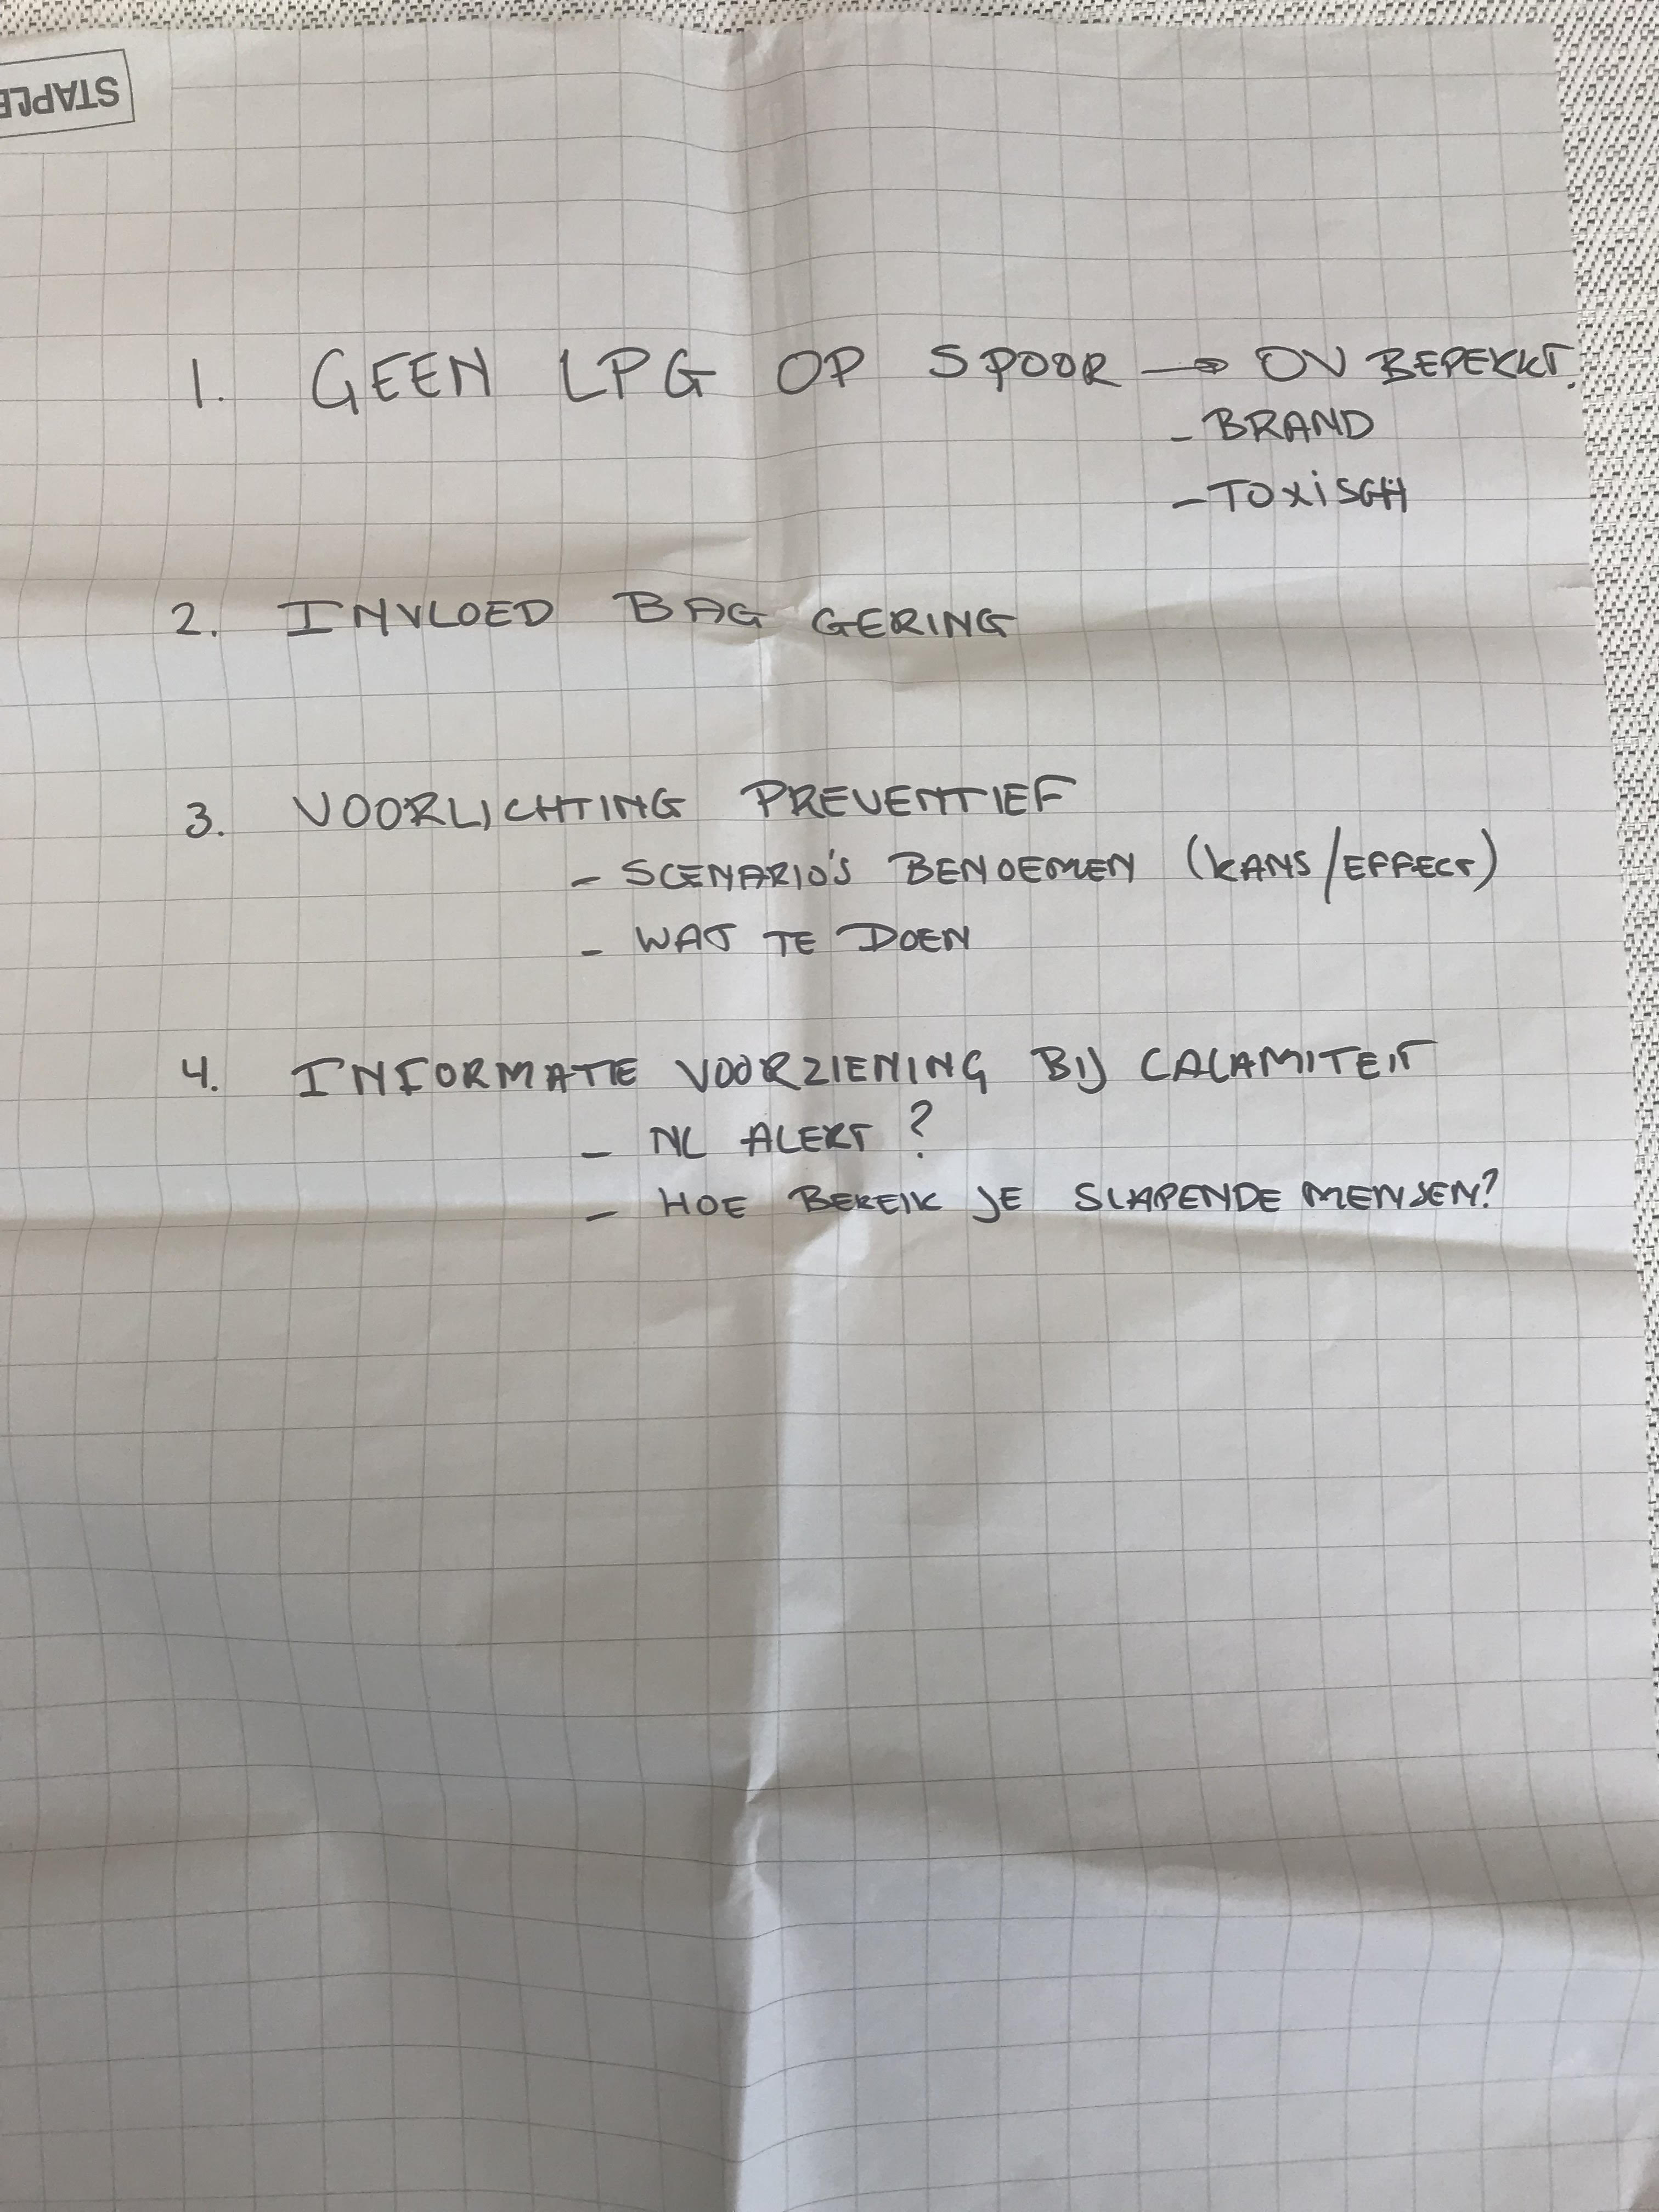 STAPLE
1. GEEN LPG OP SPOOR → OV BEPERKT.
- BRAND
- TOXISCH
2. INVLOED BAG GERING
3. VOORLICHTING PREVENTIEF
- SCENARIO'S BENOEMEN (KANS/EFFECT)
- WAT TE DOEN
4. INFORMATIE VOORZIENING BIJ CALAMITEIT
- NL ALERT?
- HOE BEREIK JE SLAPENDE MENSEN?